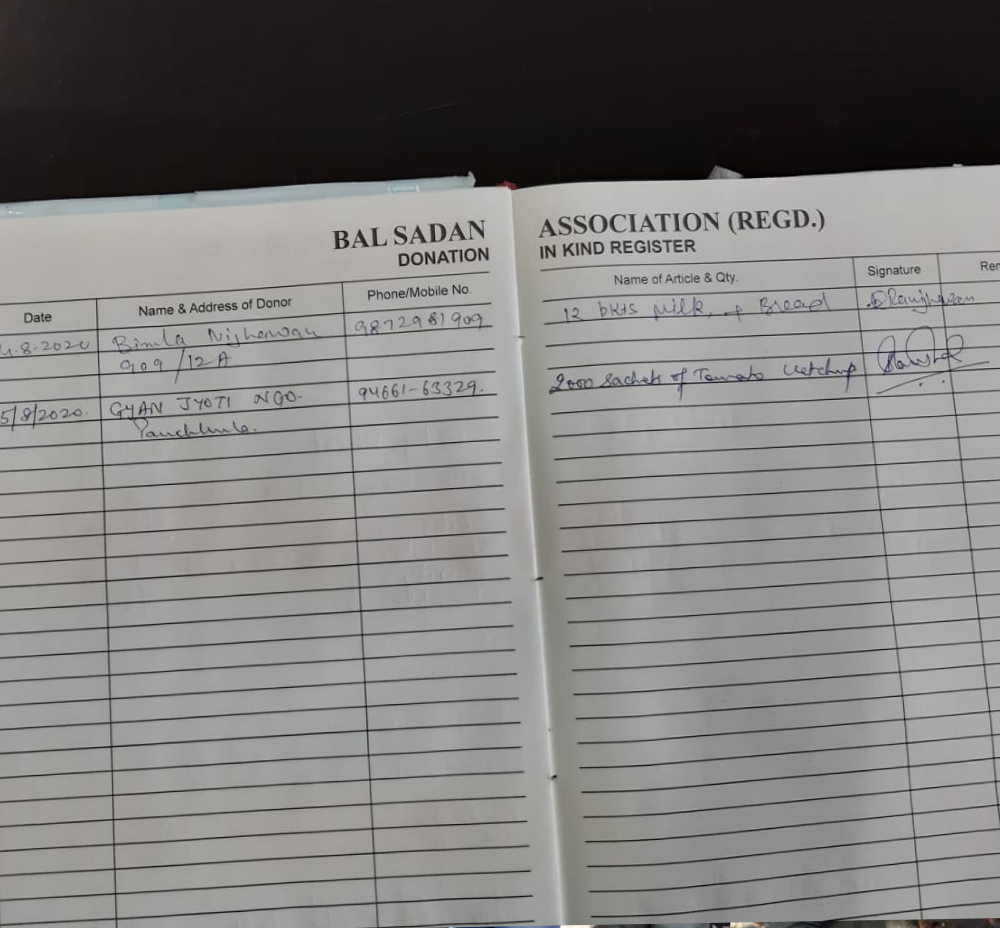 BAL SADAN ASSOCIATION (REGD.)
DONATION IN KIND REGISTER
Date Name & Address of Donor Phone/Mobile No. Name of Article & Qty. Signature Rem
4-8-2020 Bimla Nijhawan 9872981909 12 pkts Milk + Bread
909/12A
5/8/2020. GYAN JYOTI NGO. 94661-63329. 2000 Sachets of Tomato Ketchup
Panchkula.